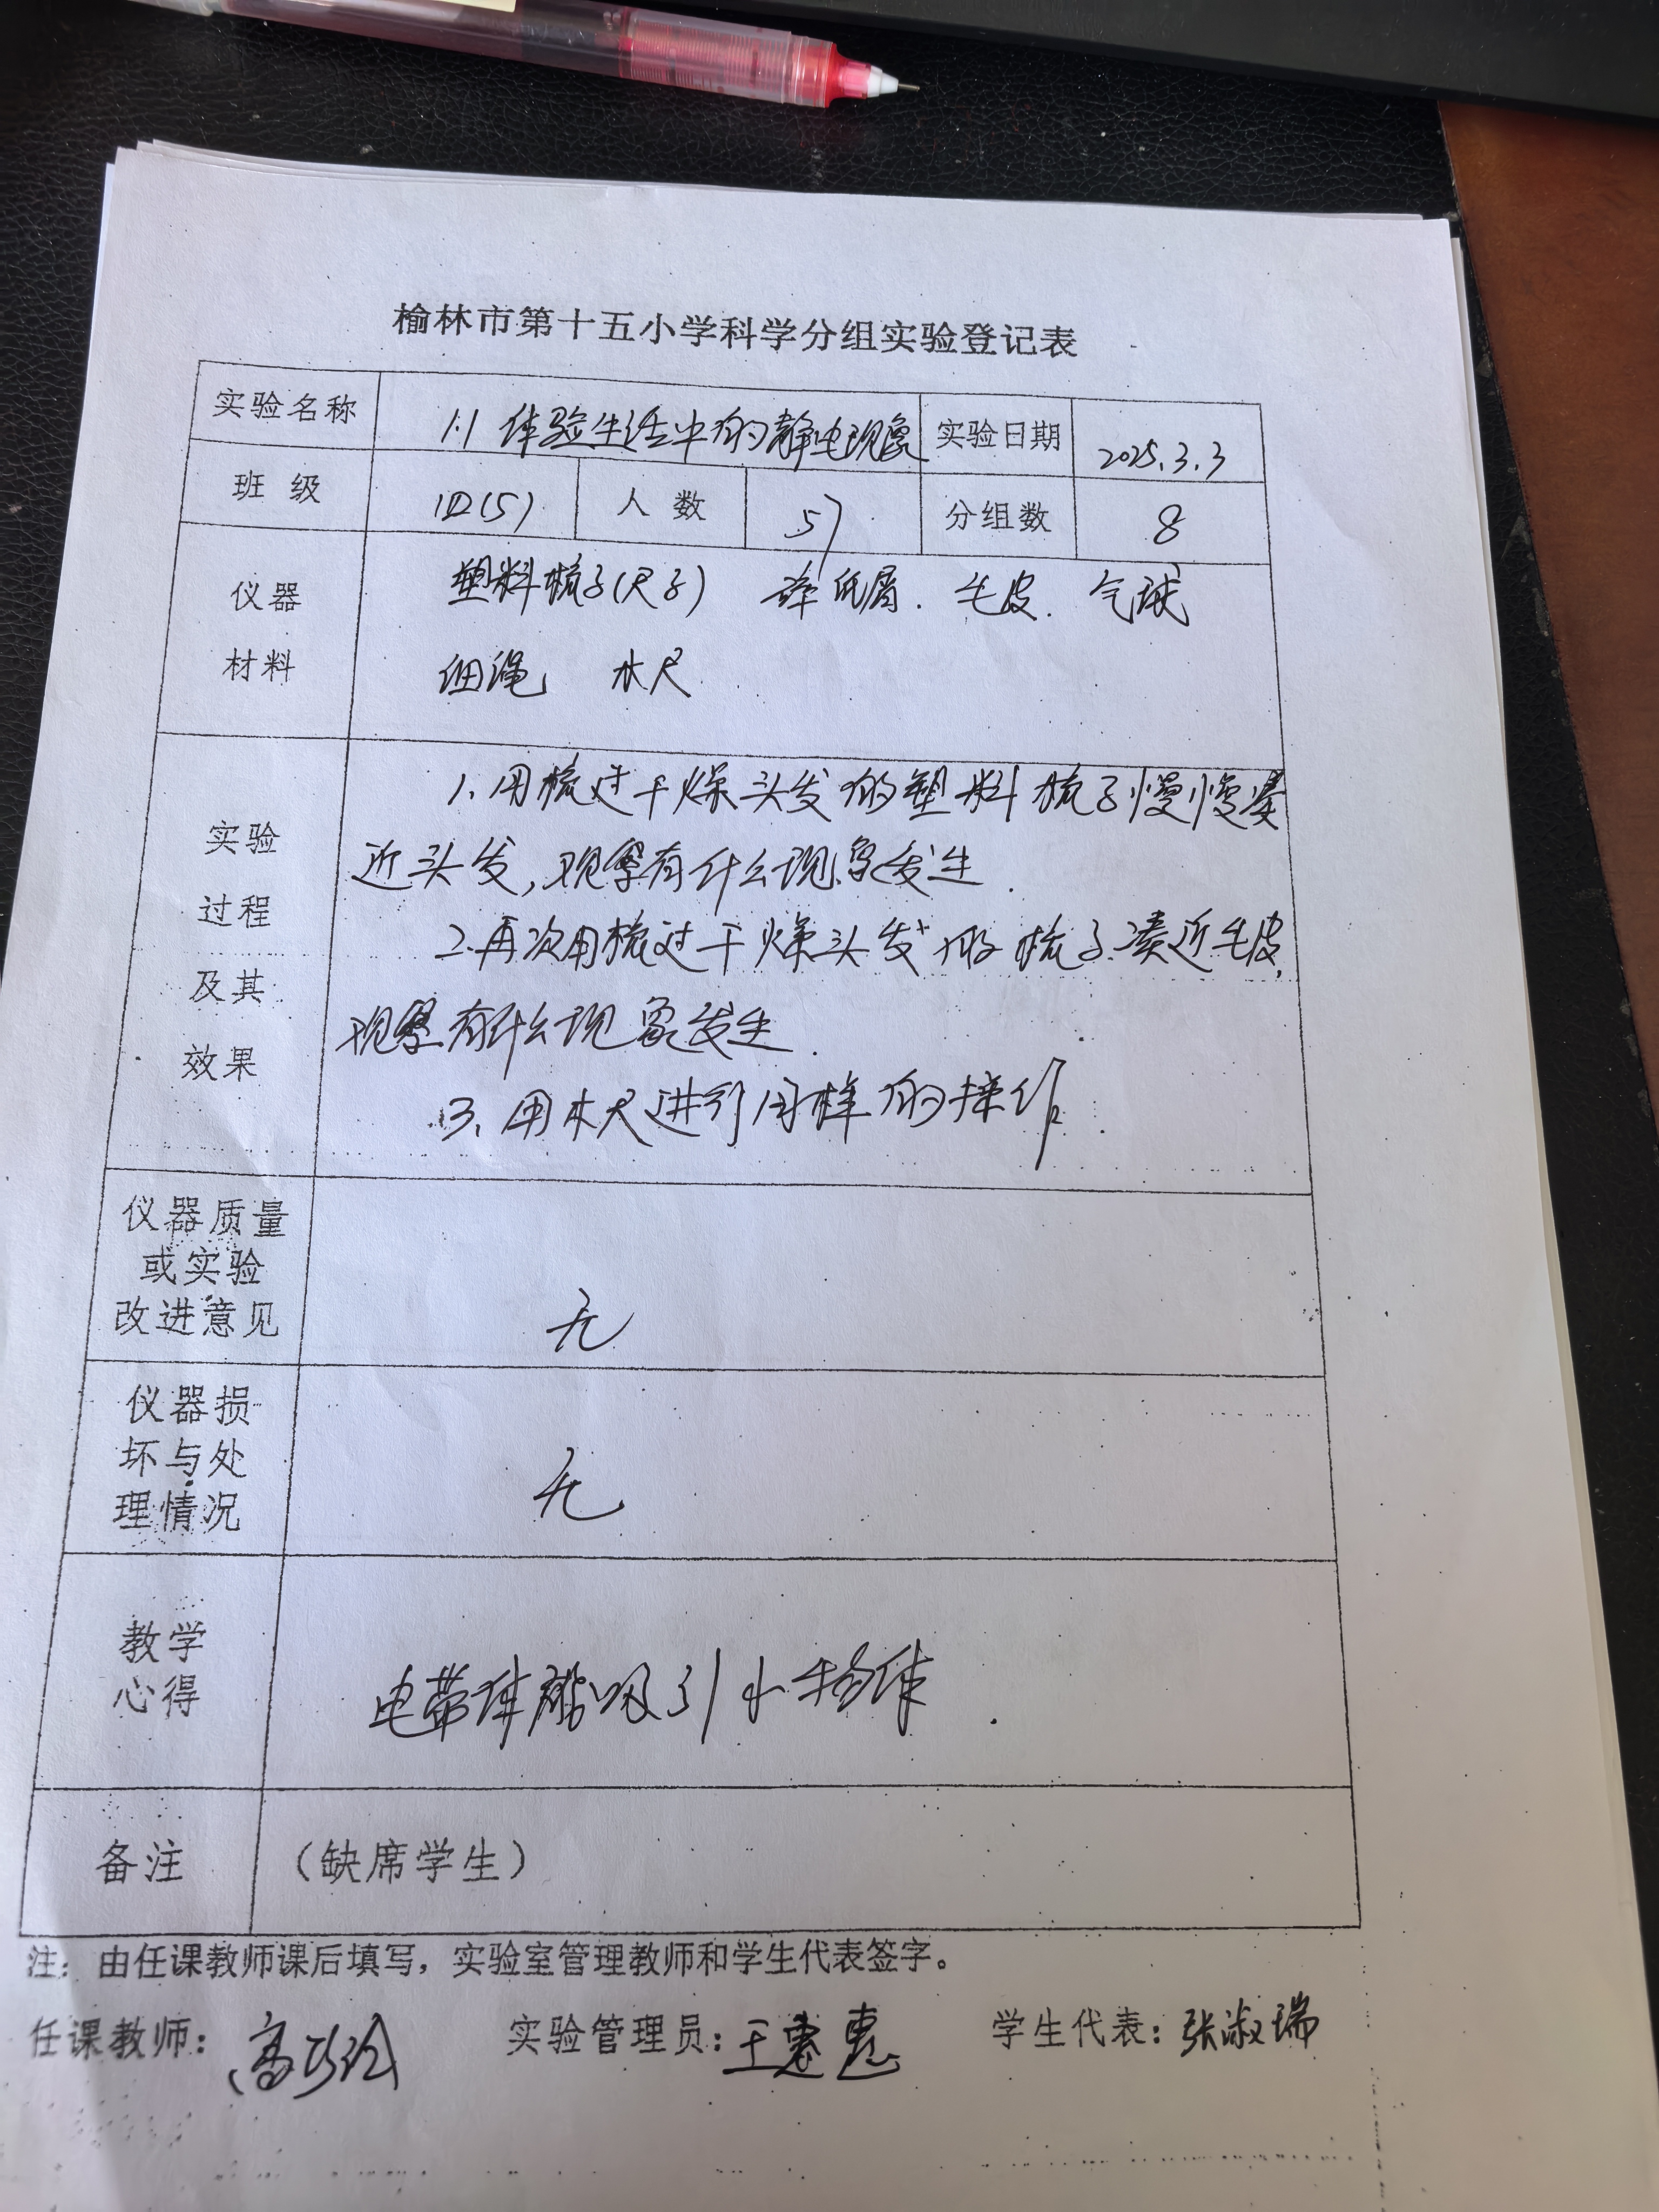 榆林市第十五小学科学分组实验登记表
实验名称 1.1 体验生活中的静电现象 实验日期 2025.3.3
班 级 四(5) 人 数 57 分组数 8
仪器 塑料梳子(尺子) 碎纸屑. 毛皮. 气球
材料 细绳 木尺
1.用梳过干燥头发的塑料梳子慢慢凑
实验 近头发,观察有什么现象发生.
过程 2.再次用梳过干燥头发的梳子凑近毛皮,
及其 观察有什么现象发生.
效果 3、用木尺进行同样的操作.
仪器质量
或实验
改进意见 无
仪器损
坏与处
理情况 无
教学
心得 电带体能吸引小物体.
备注 (缺席学生)
注：由任课教师课后填写，实验室管理教师和学生代表签字。
任课教师： 高 实验管理员：王惠惠 学生代表：张淑瑞